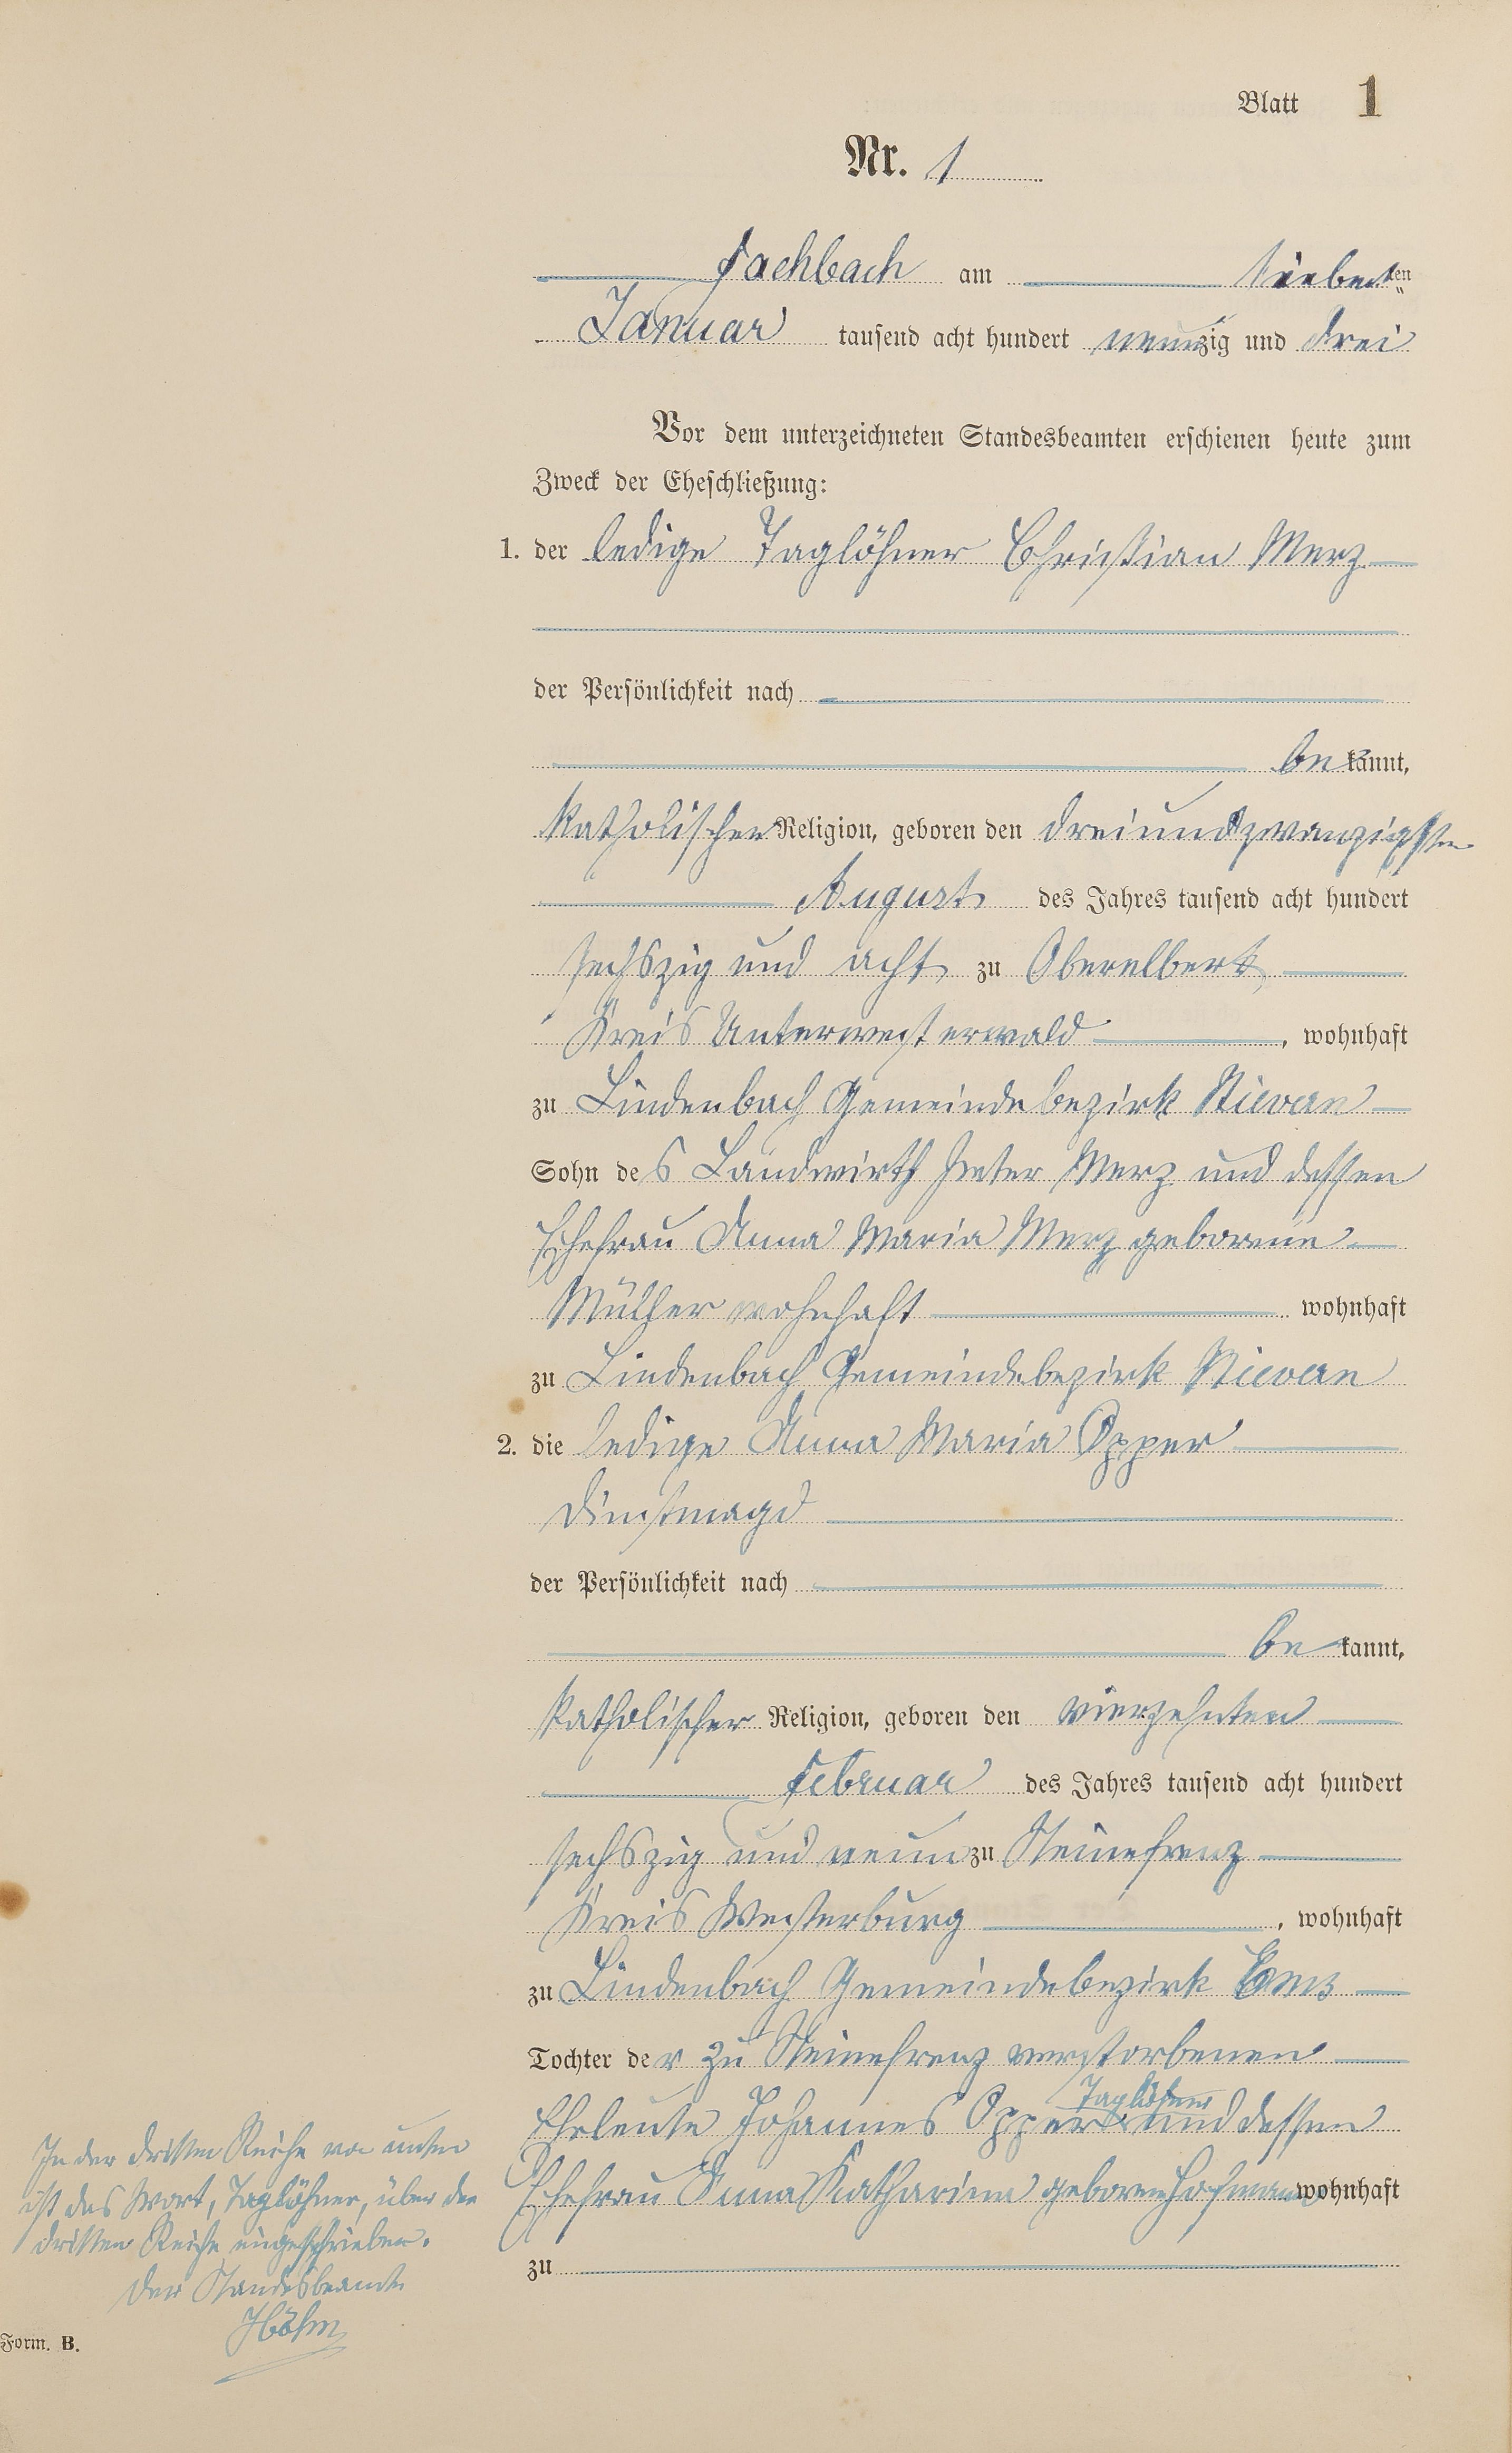 Blatt 1
Nr. 1
Fachbach am siebenten
Januar tausend acht hundert neunzig und drei
Vor dem unterzeichneten Standesbeamten erschienen heute zum
Zweck der Eheschließung:
1. der ledige Taglöhner Christian Merz
der Persönlichkeit nach
bekannt,
katholischer Religion, geboren den dreiundzwanzigsten
August des Jahres tausend acht hundert
sechszig und acht zu Oberelbert
Kreis Unterwesterwald, wohnhaft
zu Lindenbach Gemeindebezirk Nievern
Sohn des Landwirth Peter Merz und dessen
Ehefrau Anna Maria Merz geborene
Müller wohnhaft wohnhaft
zu Lindenbach Gemeindebezirk Nievern
2. die ledige Anna Maria Opper
Dienstmagd
der Persönlichkeit nach
bekannt,
katholischer Religion, geboren den vierzehnten
Februar des Jahres tausend acht hundert
sechszig und neun zu Steinefrenz
Kreis Westerburg, wohnhaft
zu Lindenbach Gemeindebezirk Ems
Tochter der zu Steinefrenz verstorbenen
Taglöhner
Eheleute Johannes Opper und dessen
Ehefrau Anna Katharina geborene Hofmann wohnhaft
zu
In der dritten Reihe von unten
ist das Wort, Taglöhner, über der
dritten Reihe eingeschrieben.
Der Standesbeamte
Höhn
Form. B.